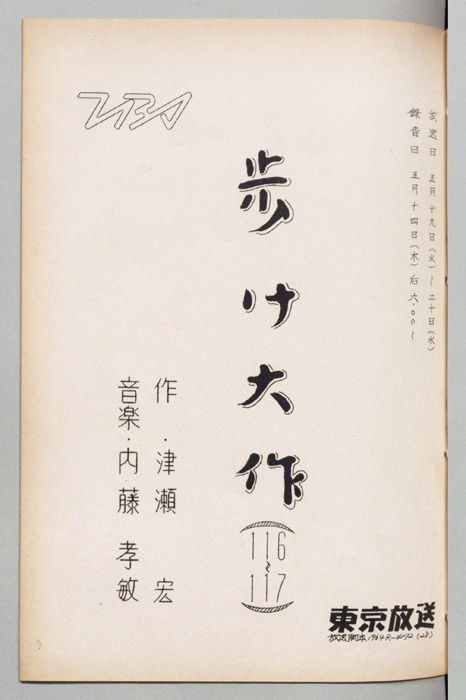 放送日 五月十九日(火)~二十日(水)
録音日 五月十四日(木)后六.00~
TBS
歩け大作
(116~117)
作・津瀬 宏
音楽・内藤 孝敏
東京放送